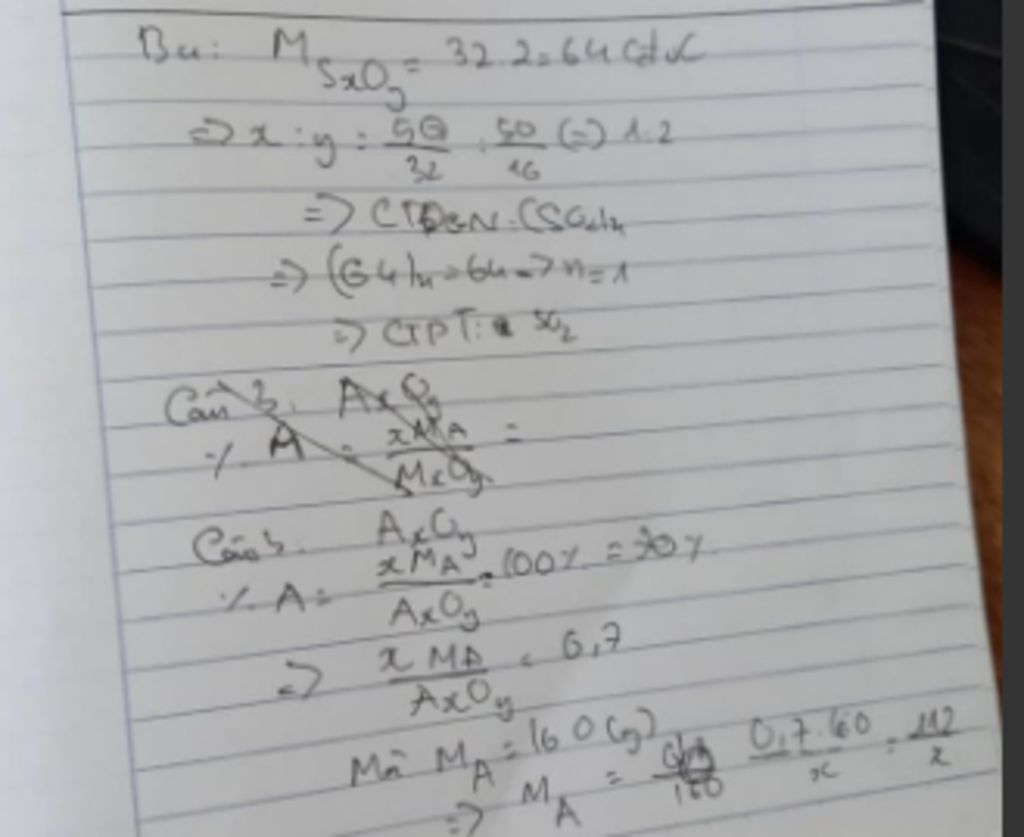 Bu: M SxOy = 32.2 = 64 đvC
=> x : y = 50/32 : 50/16 (=) 1:2
=> CTĐGN: (SO2)n
=> (64)n = 64 => n = 1
=> CTPT: SO2
Câu 3. AxOy
% A = xMA/MxOy =
Câu 3. AxOy
% A = xMA/AxOy . 100% = 70%
=> x MA/AxOy = 0,7
Mà MA = 160 (g)
=> MA = 0,7.160/x = 112/x